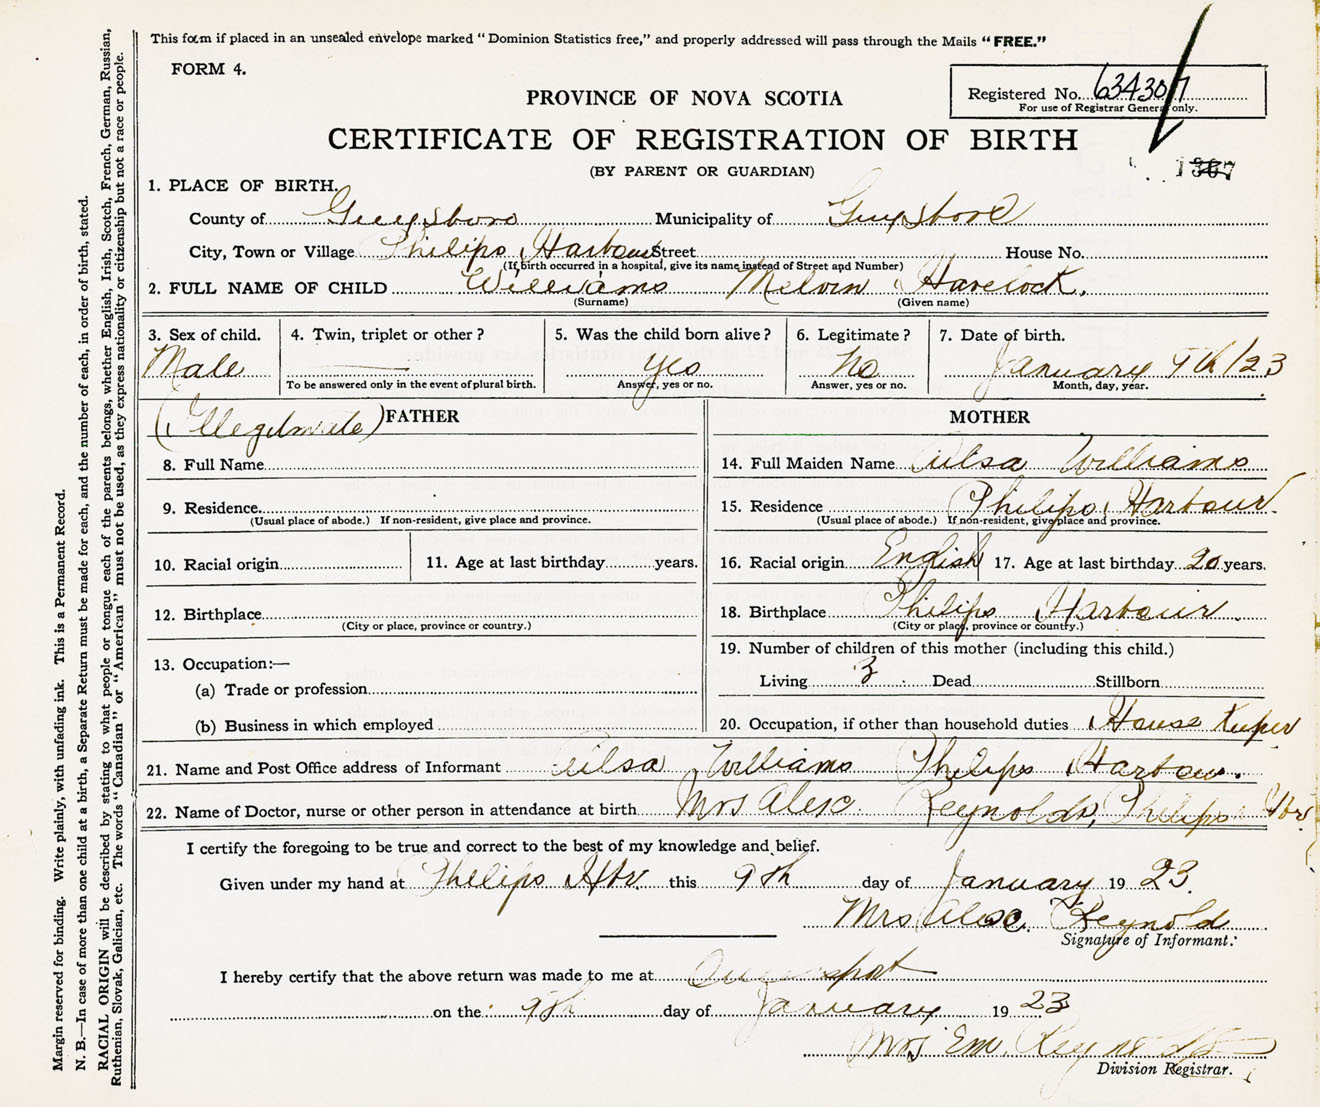 This form if placed in an unsealed envelope marked "Dominion Statistics free," and properly addressed will pass through the Mails "FREE."
FORM 4.
Registered No. 634307
For use of Registrar General only.
PROVINCE OF NOVA SCOTIA
CERTIFICATE OF REGISTRATION OF BIRTH
(BY PARENT OR GUARDIAN)
1. PLACE OF BIRTH.
County of Guysboro Municipality of Guysboro
City, Town or Village Philips Harbour Street House No.
(If birth occurred in a hospital, give its name instead of Street and Number)
2. FULL NAME OF CHILD Williams Melvin Havelock.
(Surname) (Given name)
3. Sex of child. 4. Twin, triplet or other? 5. Was the child born alive? 6. Legitimate? 7. Date of birth.
Male yes no January 9th/23
To be answered only in the event of plural birth. Answer, yes or no. Answer, yes or no. Month, day, year.
(Illegitimate) FATHER MOTHER
8. Full Name 14. Full Maiden Name Ailsa Williams
9. Residence. 15. Residence Philips Harbour.
(Usual place of abode.) If non-resident, give place and province. (Usual place of abode.) If non-resident, give place and province.
10. Racial origin 11. Age at last birthday years. 16. Racial origin English 17. Age at last birthday 20 years.
12. Birthplace 18. Birthplace Philips Harbour
(City or place, province or country.) (City or place, province or country.)
19. Number of children of this mother (including this child.)
13. Occupation:—
(a) Trade or profession Living 3 Dead Stillborn
(b) Business in which employed 20. Occupation, if other than household duties House Keeper
21. Name and Post Office address of Informant Ailsa Williams Philips Harbour.
22. Name of Doctor, nurse or other person in attendance at birth Mrs Alex Reynolds, Philips Hbr
I certify the foregoing to be true and correct to the best of my knowledge and belief.
Given under my hand at Philips Hbr. this 9th day of January 1923.
Mrs Alex. Reynold
Signature of Informant.
I hereby certify that the above return was made to me at Queensport
on the 9th day of January 1923
Mrs Em. Reynolds
Division Registrar.
Margin reserved for binding. Write plainly, with unfading ink. This is a Permanent Record.
N. B.—In case of more than one child at a birth, a Separate Return must be made for each, and the number of each, in order of birth, stated.
RACIAL ORIGIN will be described by stating to what people or tongue each of the parents belongs, whether English, Irish, Scotch, French, German, Russian,
Ruthenian, Slovak, Galician, etc. The words "Canadian" or "American" must not be used, as they express nationality or citizenship but not a race or people.